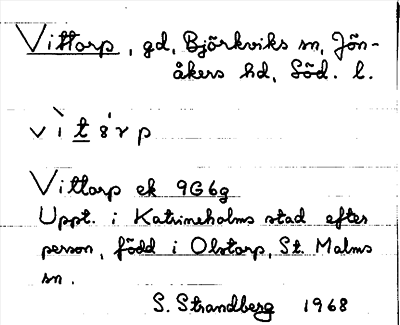 Vittorp, gd, Björkviks sn, Jön-
åkers hd, Söd. l.
Vittorp ek 9G6g
Uppt. i Katrineholms stad efter
person, född i Olstorp, St. Malms
sn.
S. Strandberg 1968